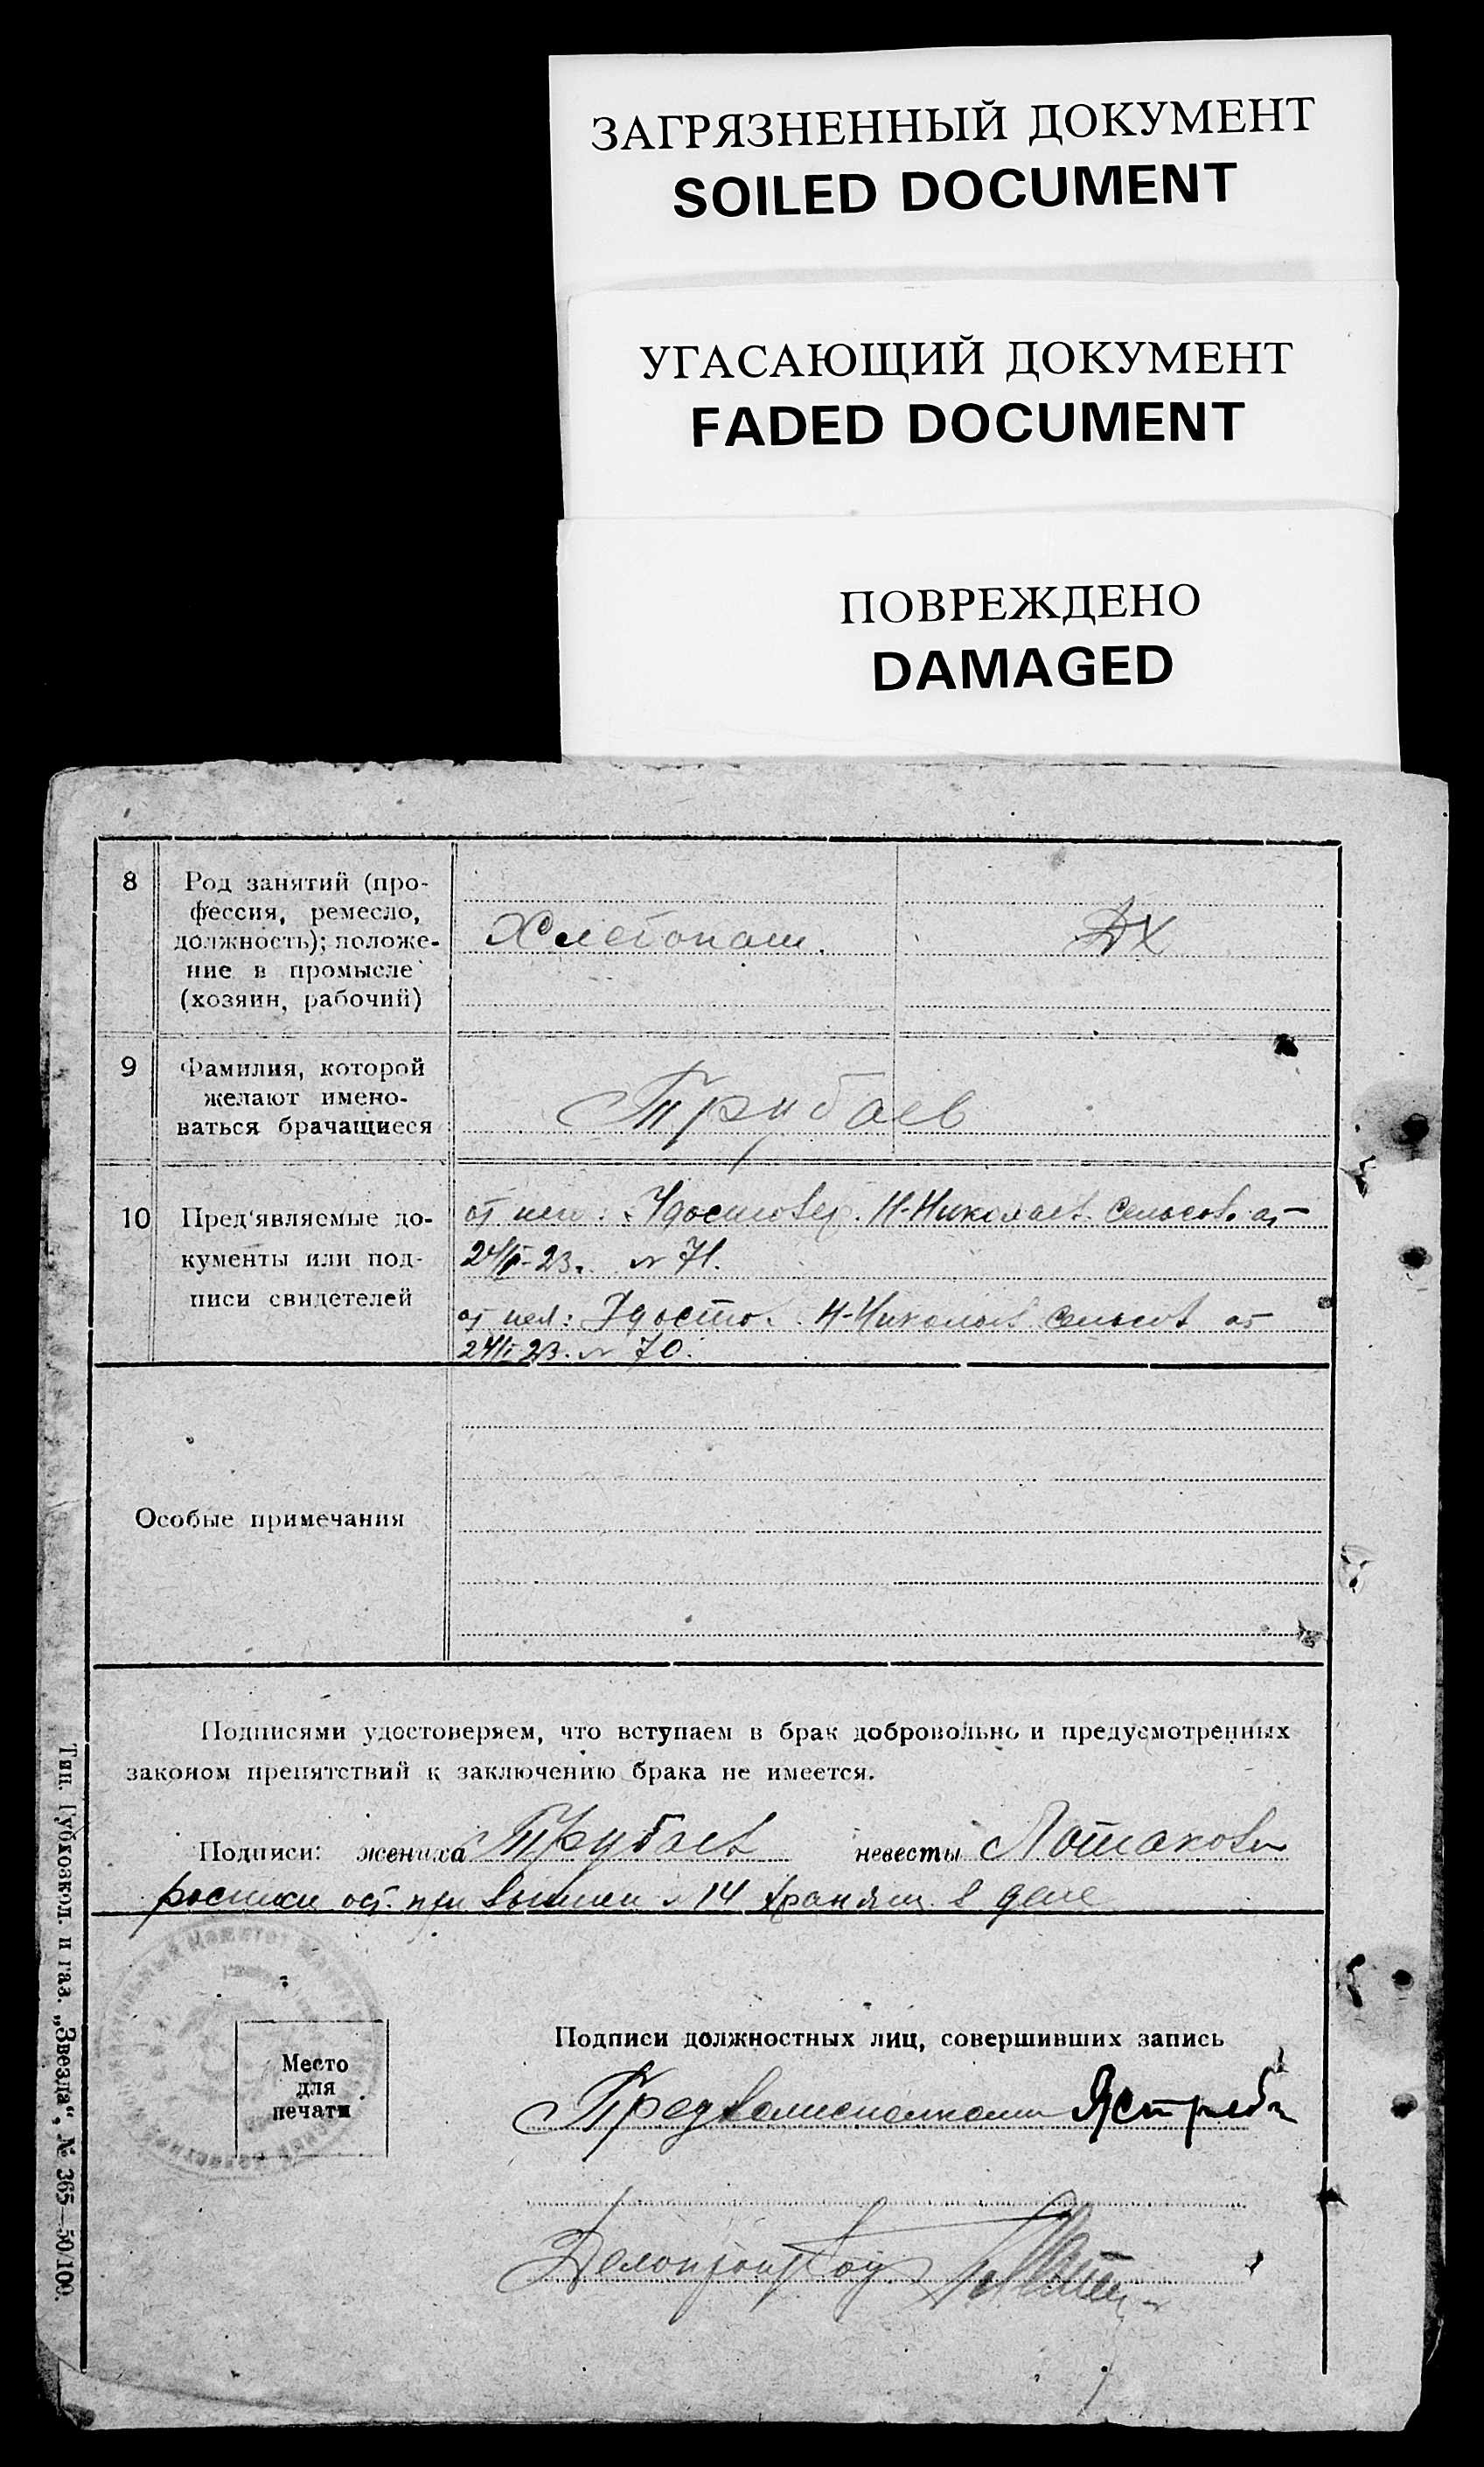 ЗАГРЯЗНЕННЫЙ ДОКУМЕНТ
SOILED DOCUMENT
УГАСАЮЩИЙ ДОКУМЕНТ
FADED DOCUMENT
ПОВРЕЖДЕНО
DAMAGED
8
Род занятий (про-
фессия, ремесло,
должность); положе-
ние в промысле
(хозяин, рабочий)
Хлебопаш.
ДХ
9
Фамилия, которой
желают имено-
ваться брачащиеся
Трубаев
10
Пред'являемые до-
кументы или под-
писи свидетелей
от него: Удостовер. Н-Николаев. Сельсов. от
24/I-23. № 71.
от нея: Удостов. Н-Николаев Сельсов от
24/I 23. № 70.
Особые примечания
Подписями удостоверяем, что вступаем в брак добровольно и предусмотренных
законом препятствий к заключению брака не имеется.
Подписи: жениха Трубаев невесты Лотакова
при № 14 хранящ. в деле
Место
для
печати
Подписи должностных лиц, совершивших запись
Предволисполкома
Делопроизвод
Тип. Губкозкол. и газ. „Звезда“, № 365—50/100.